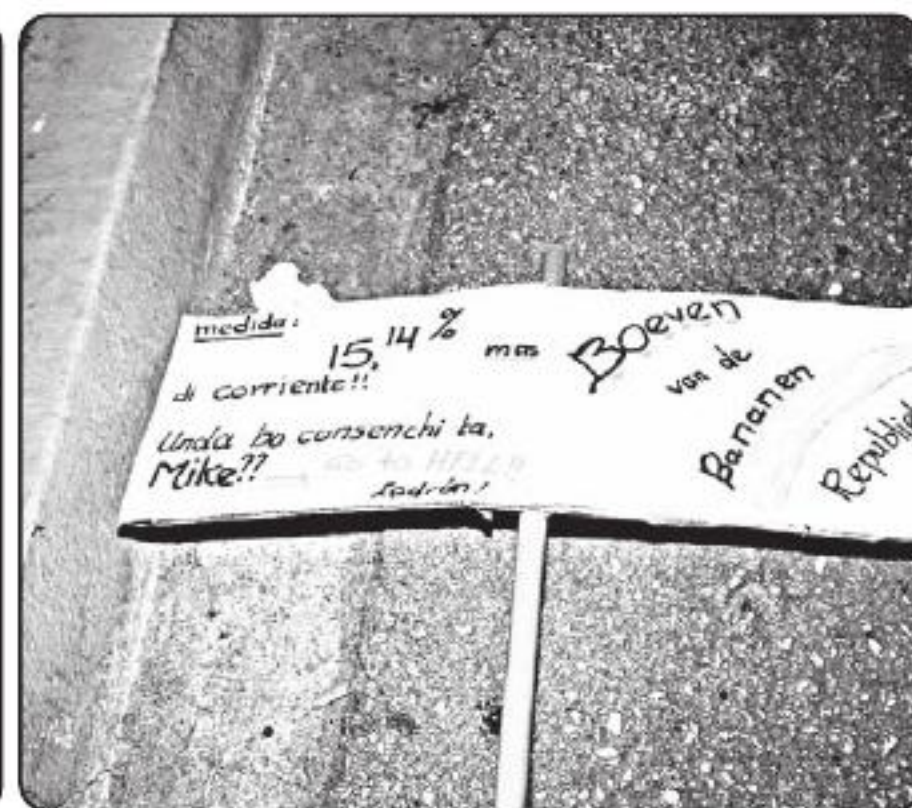 medida:
15,14% mas
di corriente!!
Unda bo consenchi ta,
Mike?? → Go to HELL!!
Ladrón!
Boeven
van de
Bananen
Republiek